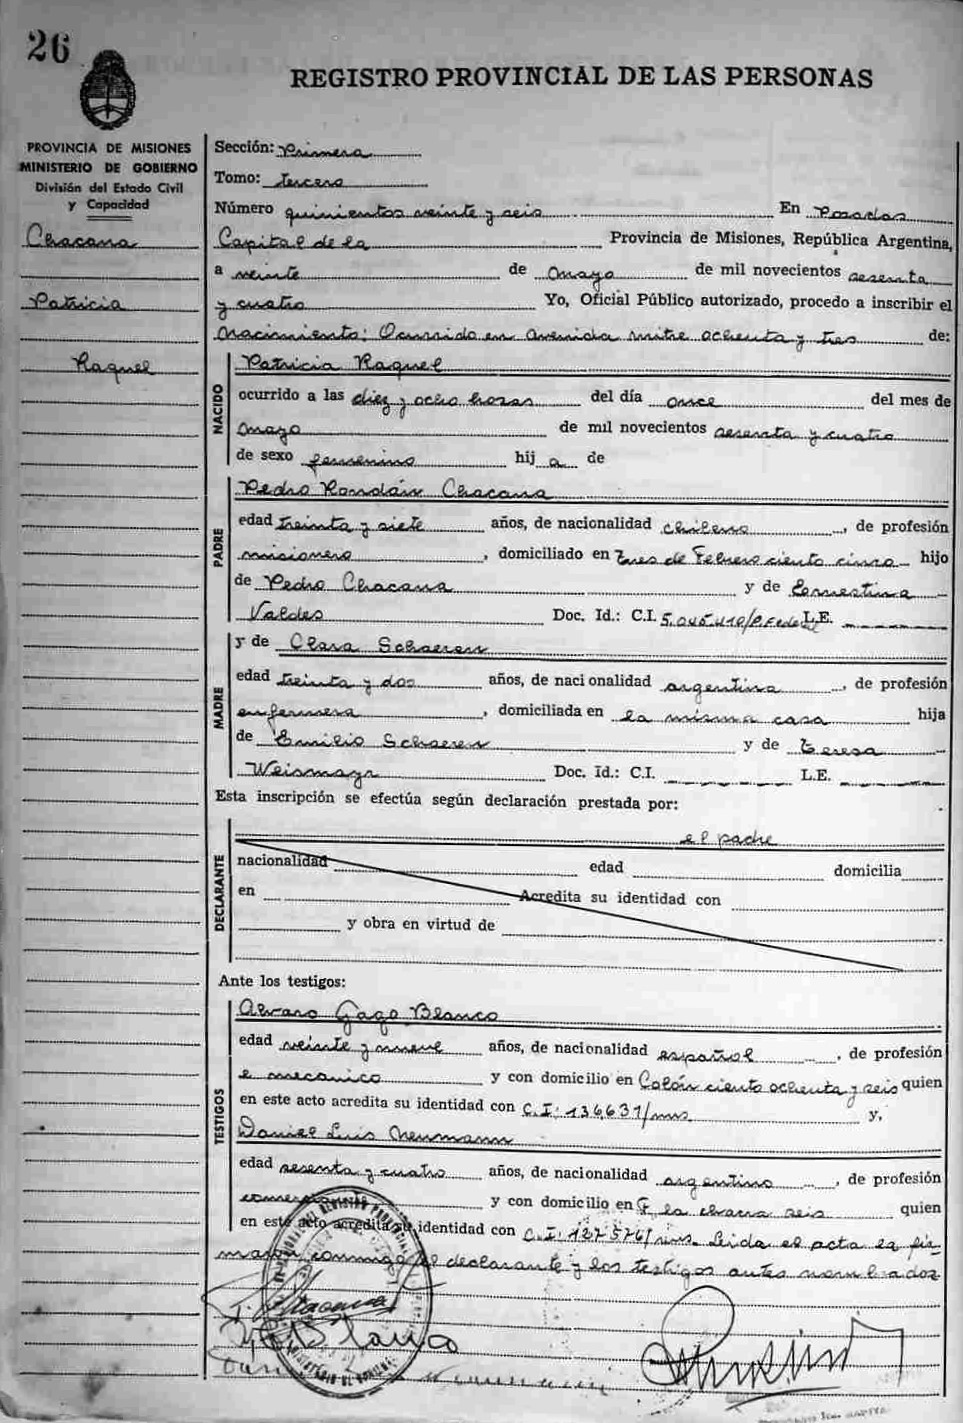 26
REGISTRO PROVINCIAL DE LAS PERSONAS
PROVINCIA DE MISIONES
MINISTERIO DE GOBIERNO
División del Estado Civil
y Capacidad
Chacana
Patricia
Raquel
Sección: Primera
Tomo: Tercero
Número quinientos veinte y seis En Posadas
Capital de la Provincia de Misiones, República Argentina,
a veinte de mayo de mil novecientos sesenta
y cuatro Yo, Oficial Público autorizado, procedo a inscribir el
nacimiento: Ocurrido en avenida mitre ochenta y tres de:
NACIDO
Patricia Raquel
ocurrido a las diez y ocho horas del día once del mes de
mayo de mil novecientos sesenta y cuatro
de sexo femenino hija de
PADRE
Pedro Rondán Chacana
edad treinta y siete años, de nacionalidad chileno, de profesión
misionero, domiciliado en Tres de Febrero ciento cinco hijo
de Pedro Chacana y de Ernestina
Valdes Doc. Id.: C.I. L.E.
MADRE
y de Clara Schaerer
edad treinta y dos años, de nacionalidad argentina, de profesión
enfermera, domiciliada en la misma casa hija
de Emilio Schaerer y de Teresa
Weismayr Doc. Id.: C.I. L.E.
Esta inscripción se efectúa según declaración prestada por:
DECLARANTE
el padre
nacionalidad edad domicilia
en Acredita su identidad con
y obra en virtud de
Ante los testigos:
TESTIGOS
Alvaro Gago Blanco
edad veinte y nueve años, de nacionalidad español, de profesión
mecanico y con domicilio en Colón ciento ochenta y seis quien
en este acto acredita su identidad con C.I: 136631/mns y,
Daniel Luis Neumann
edad sesenta y cuatro años, de nacionalidad argentino, de profesión
y con domicilio en F. la chacra seis quien
en este acto acredita su identidad con C.I: 127576/mns. Leida el acta la fir-
maron conmigo el declarante y los testigos antes nombrados
Blanco